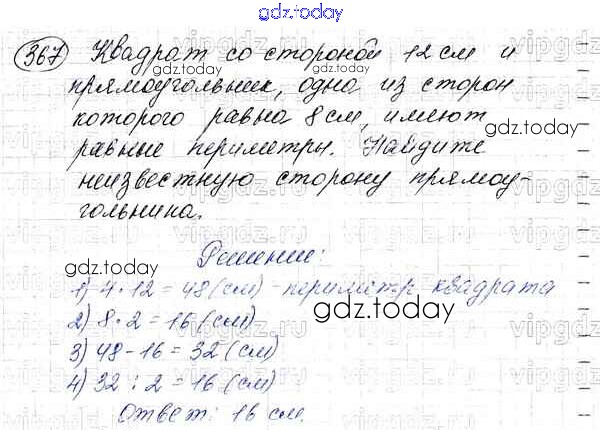 gdz.today
367 Квадрат со стороной 12 см и
прямоугольник, одна из сторон
которого равна 8 см, имеют
равные периметры. Найдите
неизвестную сторону прямоу-
гольника.
Решение:
1) 4 · 12 = 48 (см) - периметр квадрата
2) 8 · 2 = 16 (см)
3) 48 - 16 = 32 (см)
4) 32 : 2 = 16 (см)
Ответ: 16 см.
gdz.today
gdz.today
gdz.today
gdz.today
gdz.today